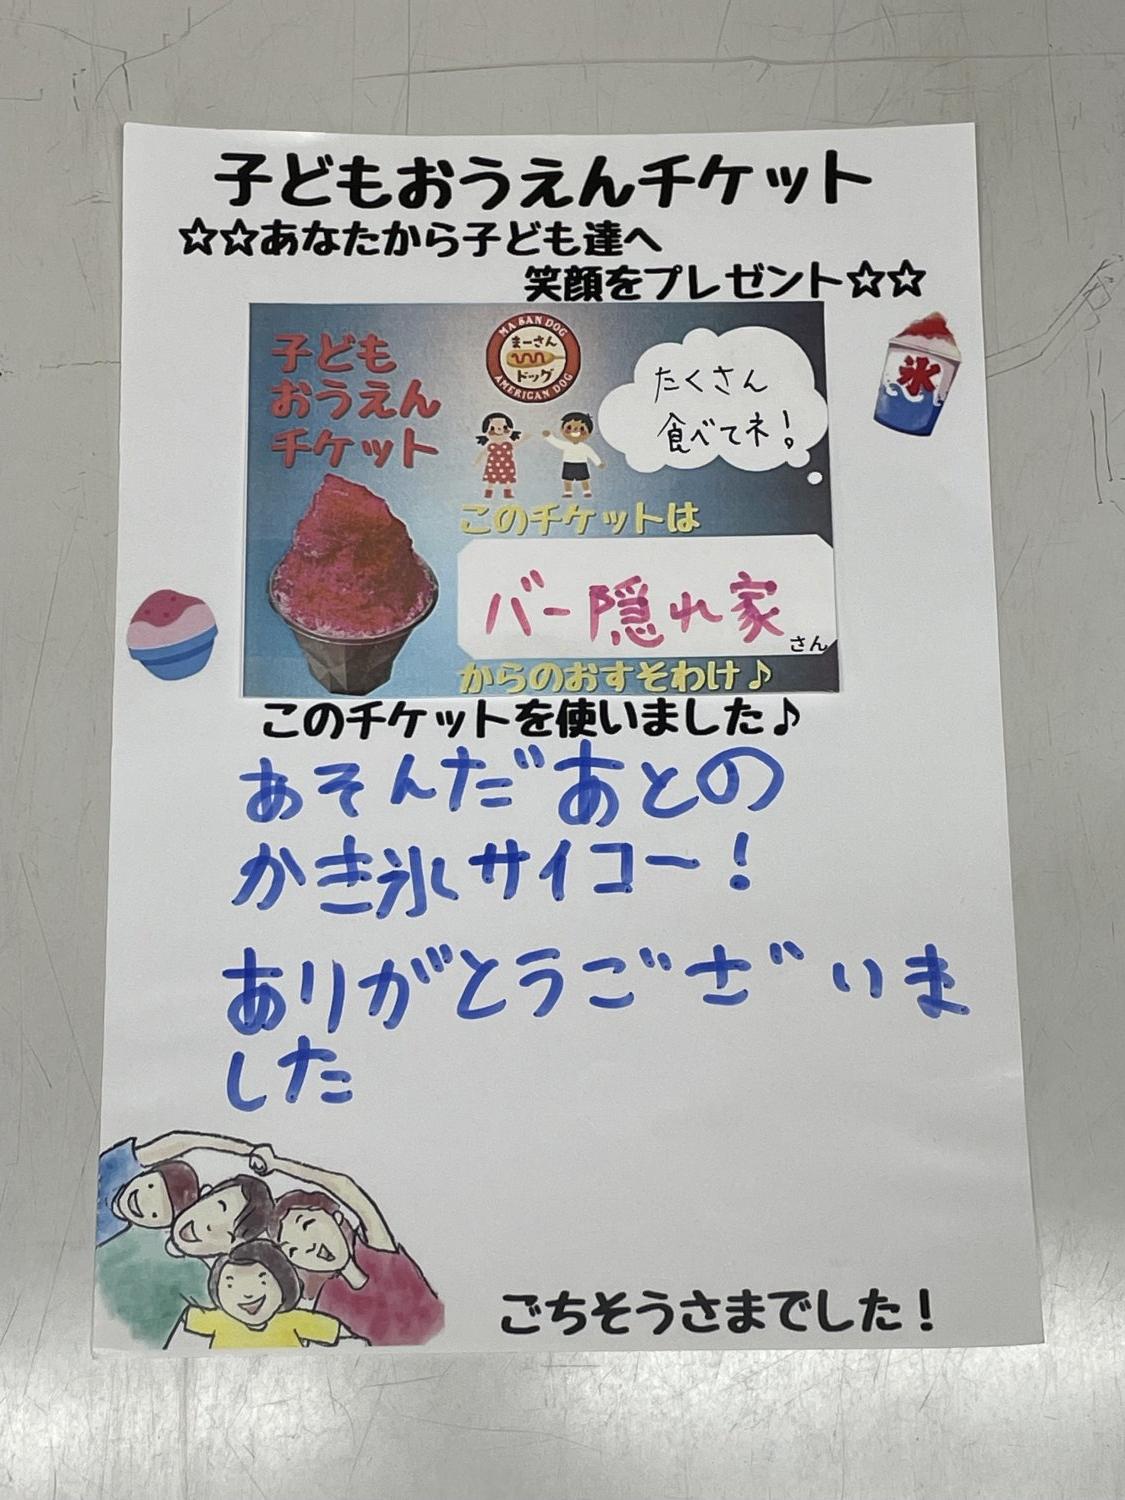 子どもおうえんチケット
☆☆あなたから子ども達へ
笑顔をプレゼント☆☆
子ども
おうえん
チケット
MA SAN DOG
まーさん
ドッグ
AMERICAN DOG
たくさん
食べてネ!。
氷
このチケットは
バー隠れ家
さん
からのおすそわけ♪
このチケットを使いました♪
あそんだあとの
かき氷サイコー!
ありがとうございま
した
ごちそうさまでした!